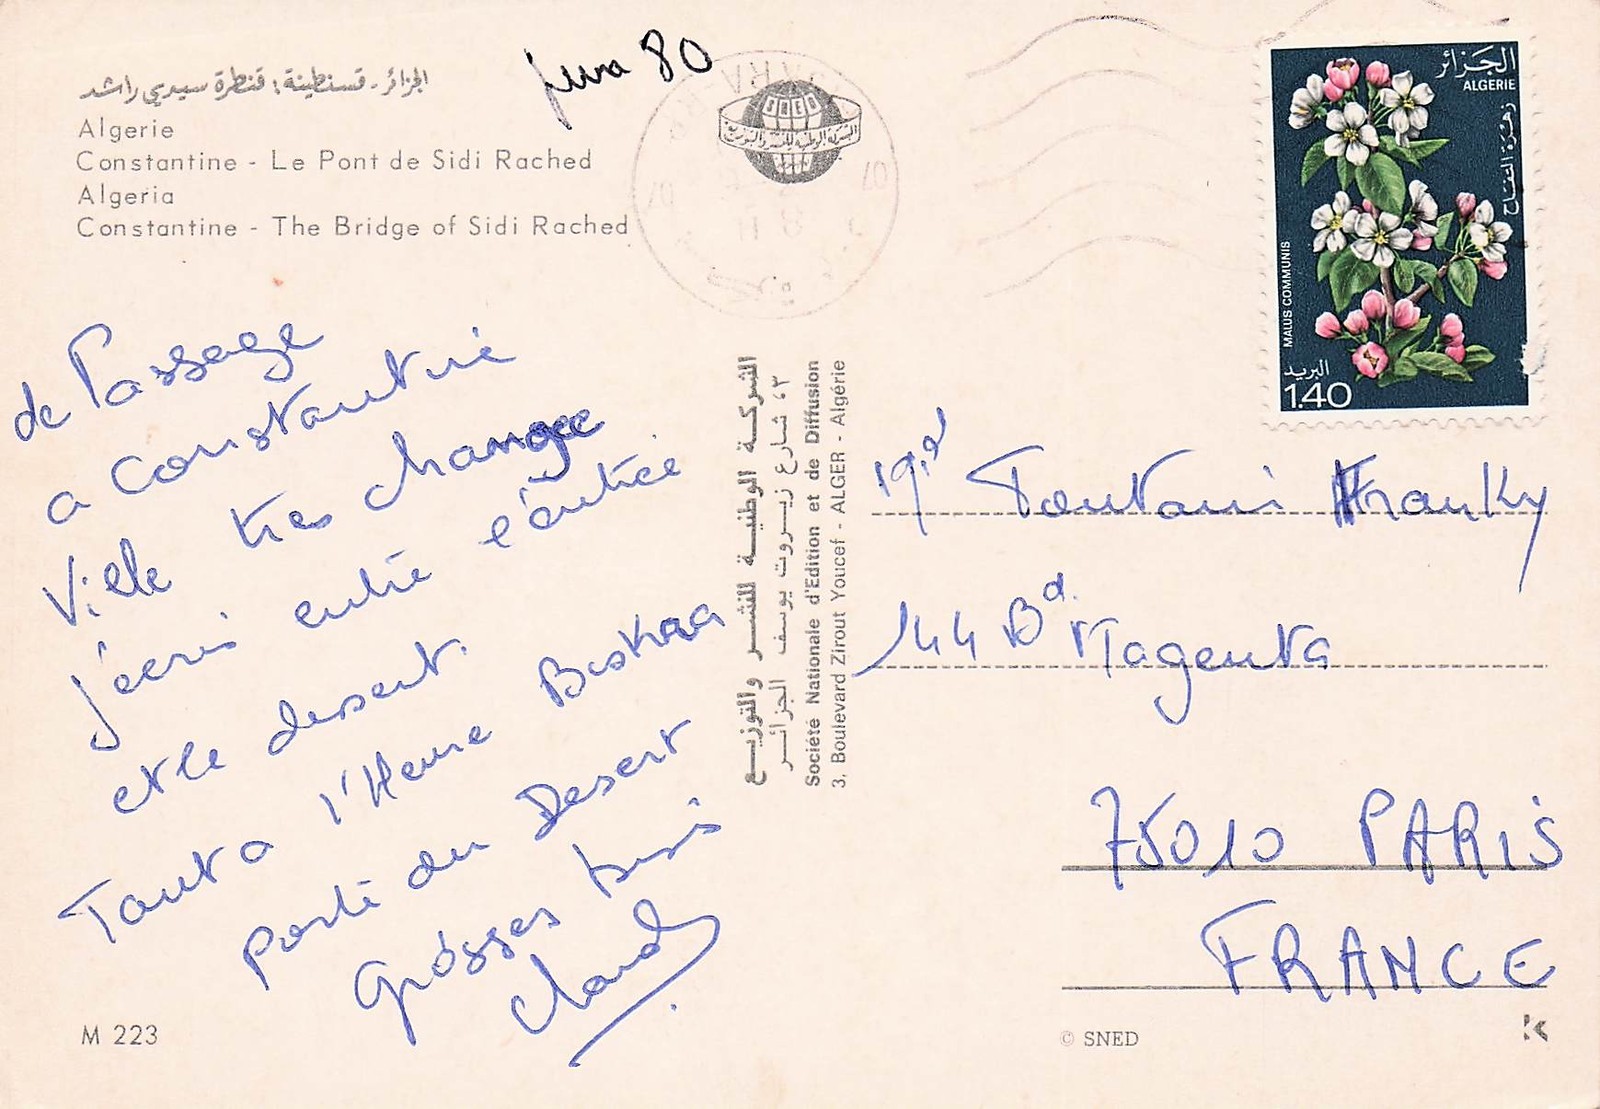 الجزائر - قسنطينة : قنطرة سيدي راشد
Algerie
Constantine - Le Pont de Sidi Rached
Algeria
Constantine - The Bridge of Sidi Rached
80
SNED
الجزائر
ALGERIE
زهرة التفاح
MALUS COMMUNIS
البريد
1.40
de Passage
a Constantine
Ville tres changée
j'ecris entre l'entrée
et le desert.
Tout a l'Heure Biskra
porte du Desert
Grosses bises
Claude
الشركة الوطنية للنشر والتوزيع
٣، شارع زيروت يوسف الجزائر
Société Nationale d'Edition et de Diffusion
3, Boulevard Zirout Youcef - ALGER - Algérie
Franky
144 Bd Magenta
75010 PARIS
FRANCE
M 223
© SNED